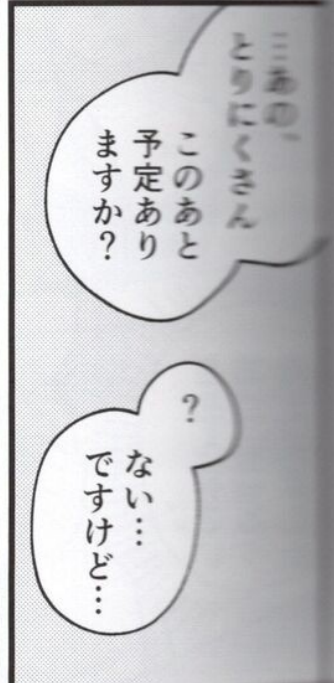 …あの、
とりにくさん
このあと
予定あり
ますか？
？
ない…
ですけど…